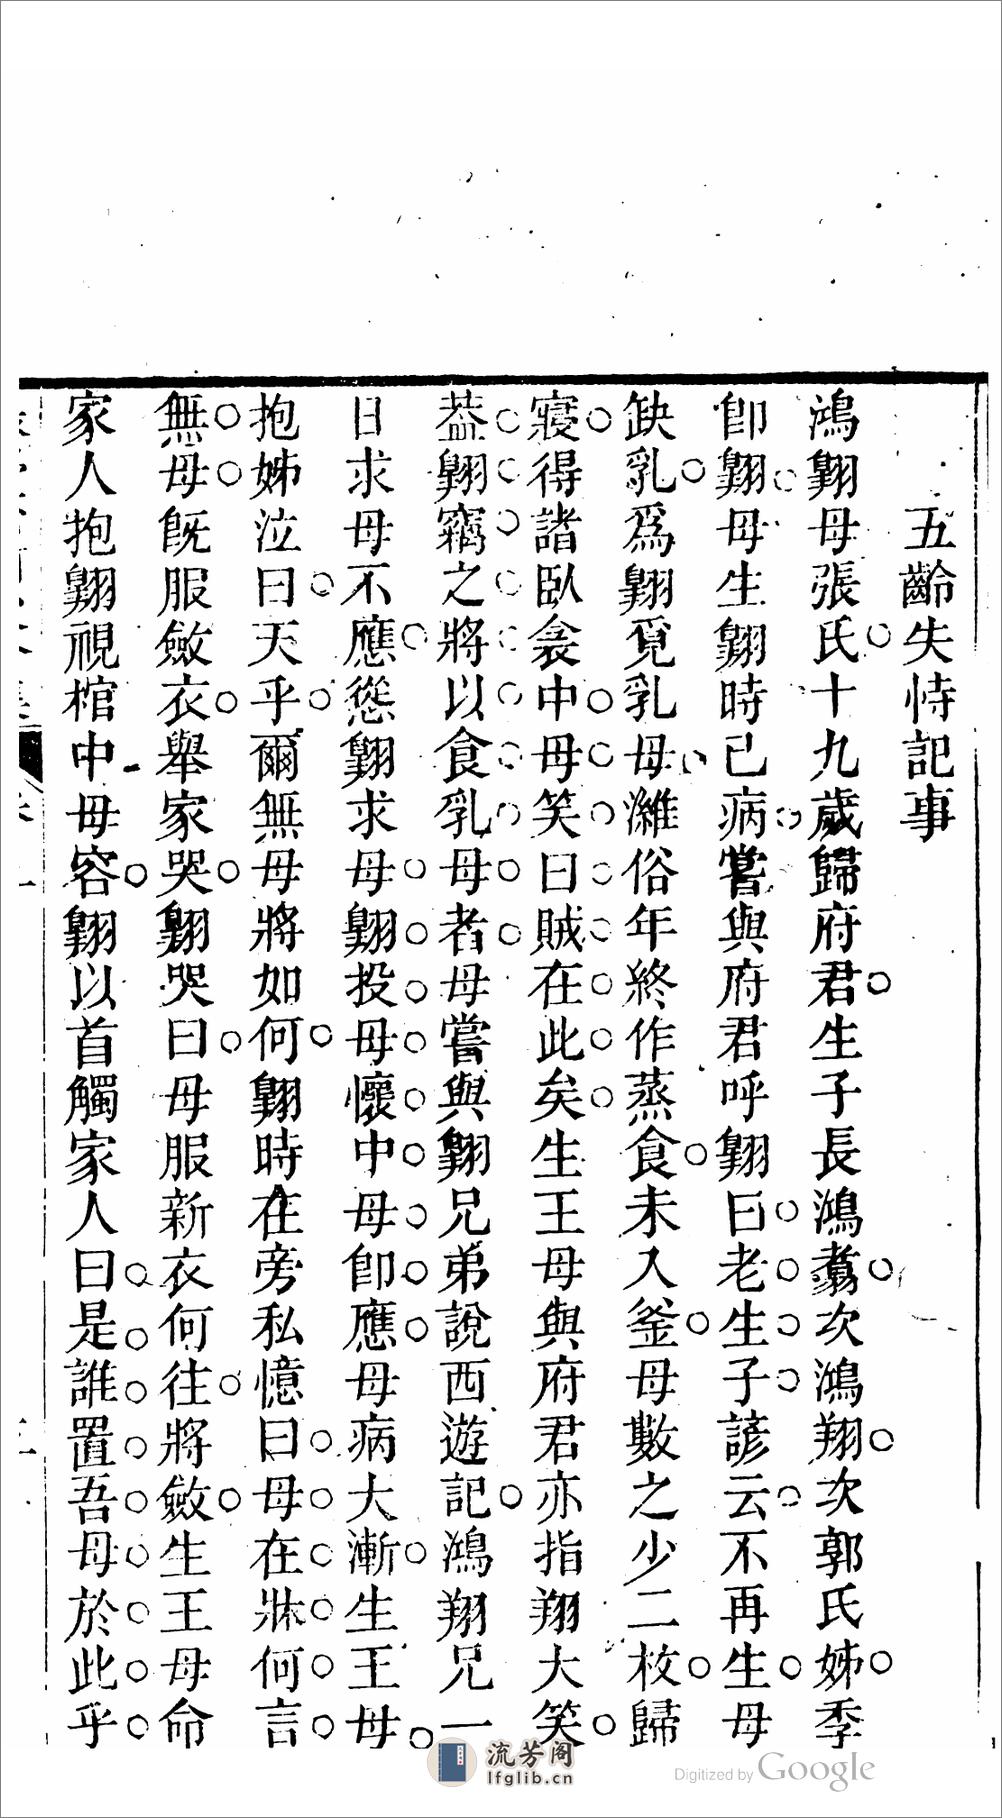 五齡失恃記事
鴻翺母張氏十九歲歸府君生子長鴻翥次鴻翔次郭氏姊季
卽翺母生翺時已病嘗與府君呼翺曰老生子諺云不再生母
缺乳爲翺覓乳母濰俗年終作蒸食未入釜母數之少二枚歸
寢得諸臥衾中母笑曰賊在此矣生王母與府君亦指翔大笑
葢翺竊之將以食乳母者母嘗與翺兄弟說西遊記鴻翔兄一
日求母不應慫翺求母翺投母懷中母卽應母病大漸生王母
抱姊泣曰天乎爾無母將如何翺時在旁私憶曰母在牀何言
無母旣服斂衣舉家哭翺哭曰母服新衣何往將斂生王母命
家人抱翺視棺中母容翺以首觸家人曰是誰置吾母於此乎
流芳阁
lfglib.cn
Digitized by Google